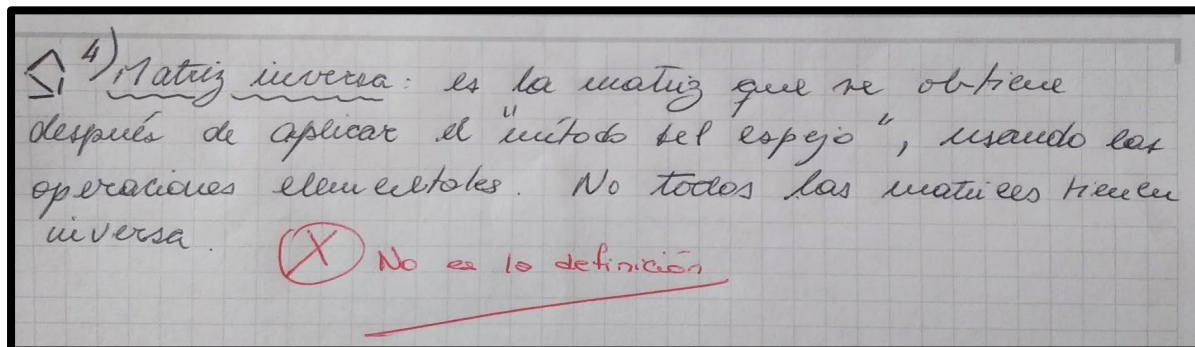 4) Matriz inversa: es la matriz que se obtiene
después de aplicar el "método del espejo", usando las
operaciones elementales. No todos las matrices tienen
inversa.
X No es la definición